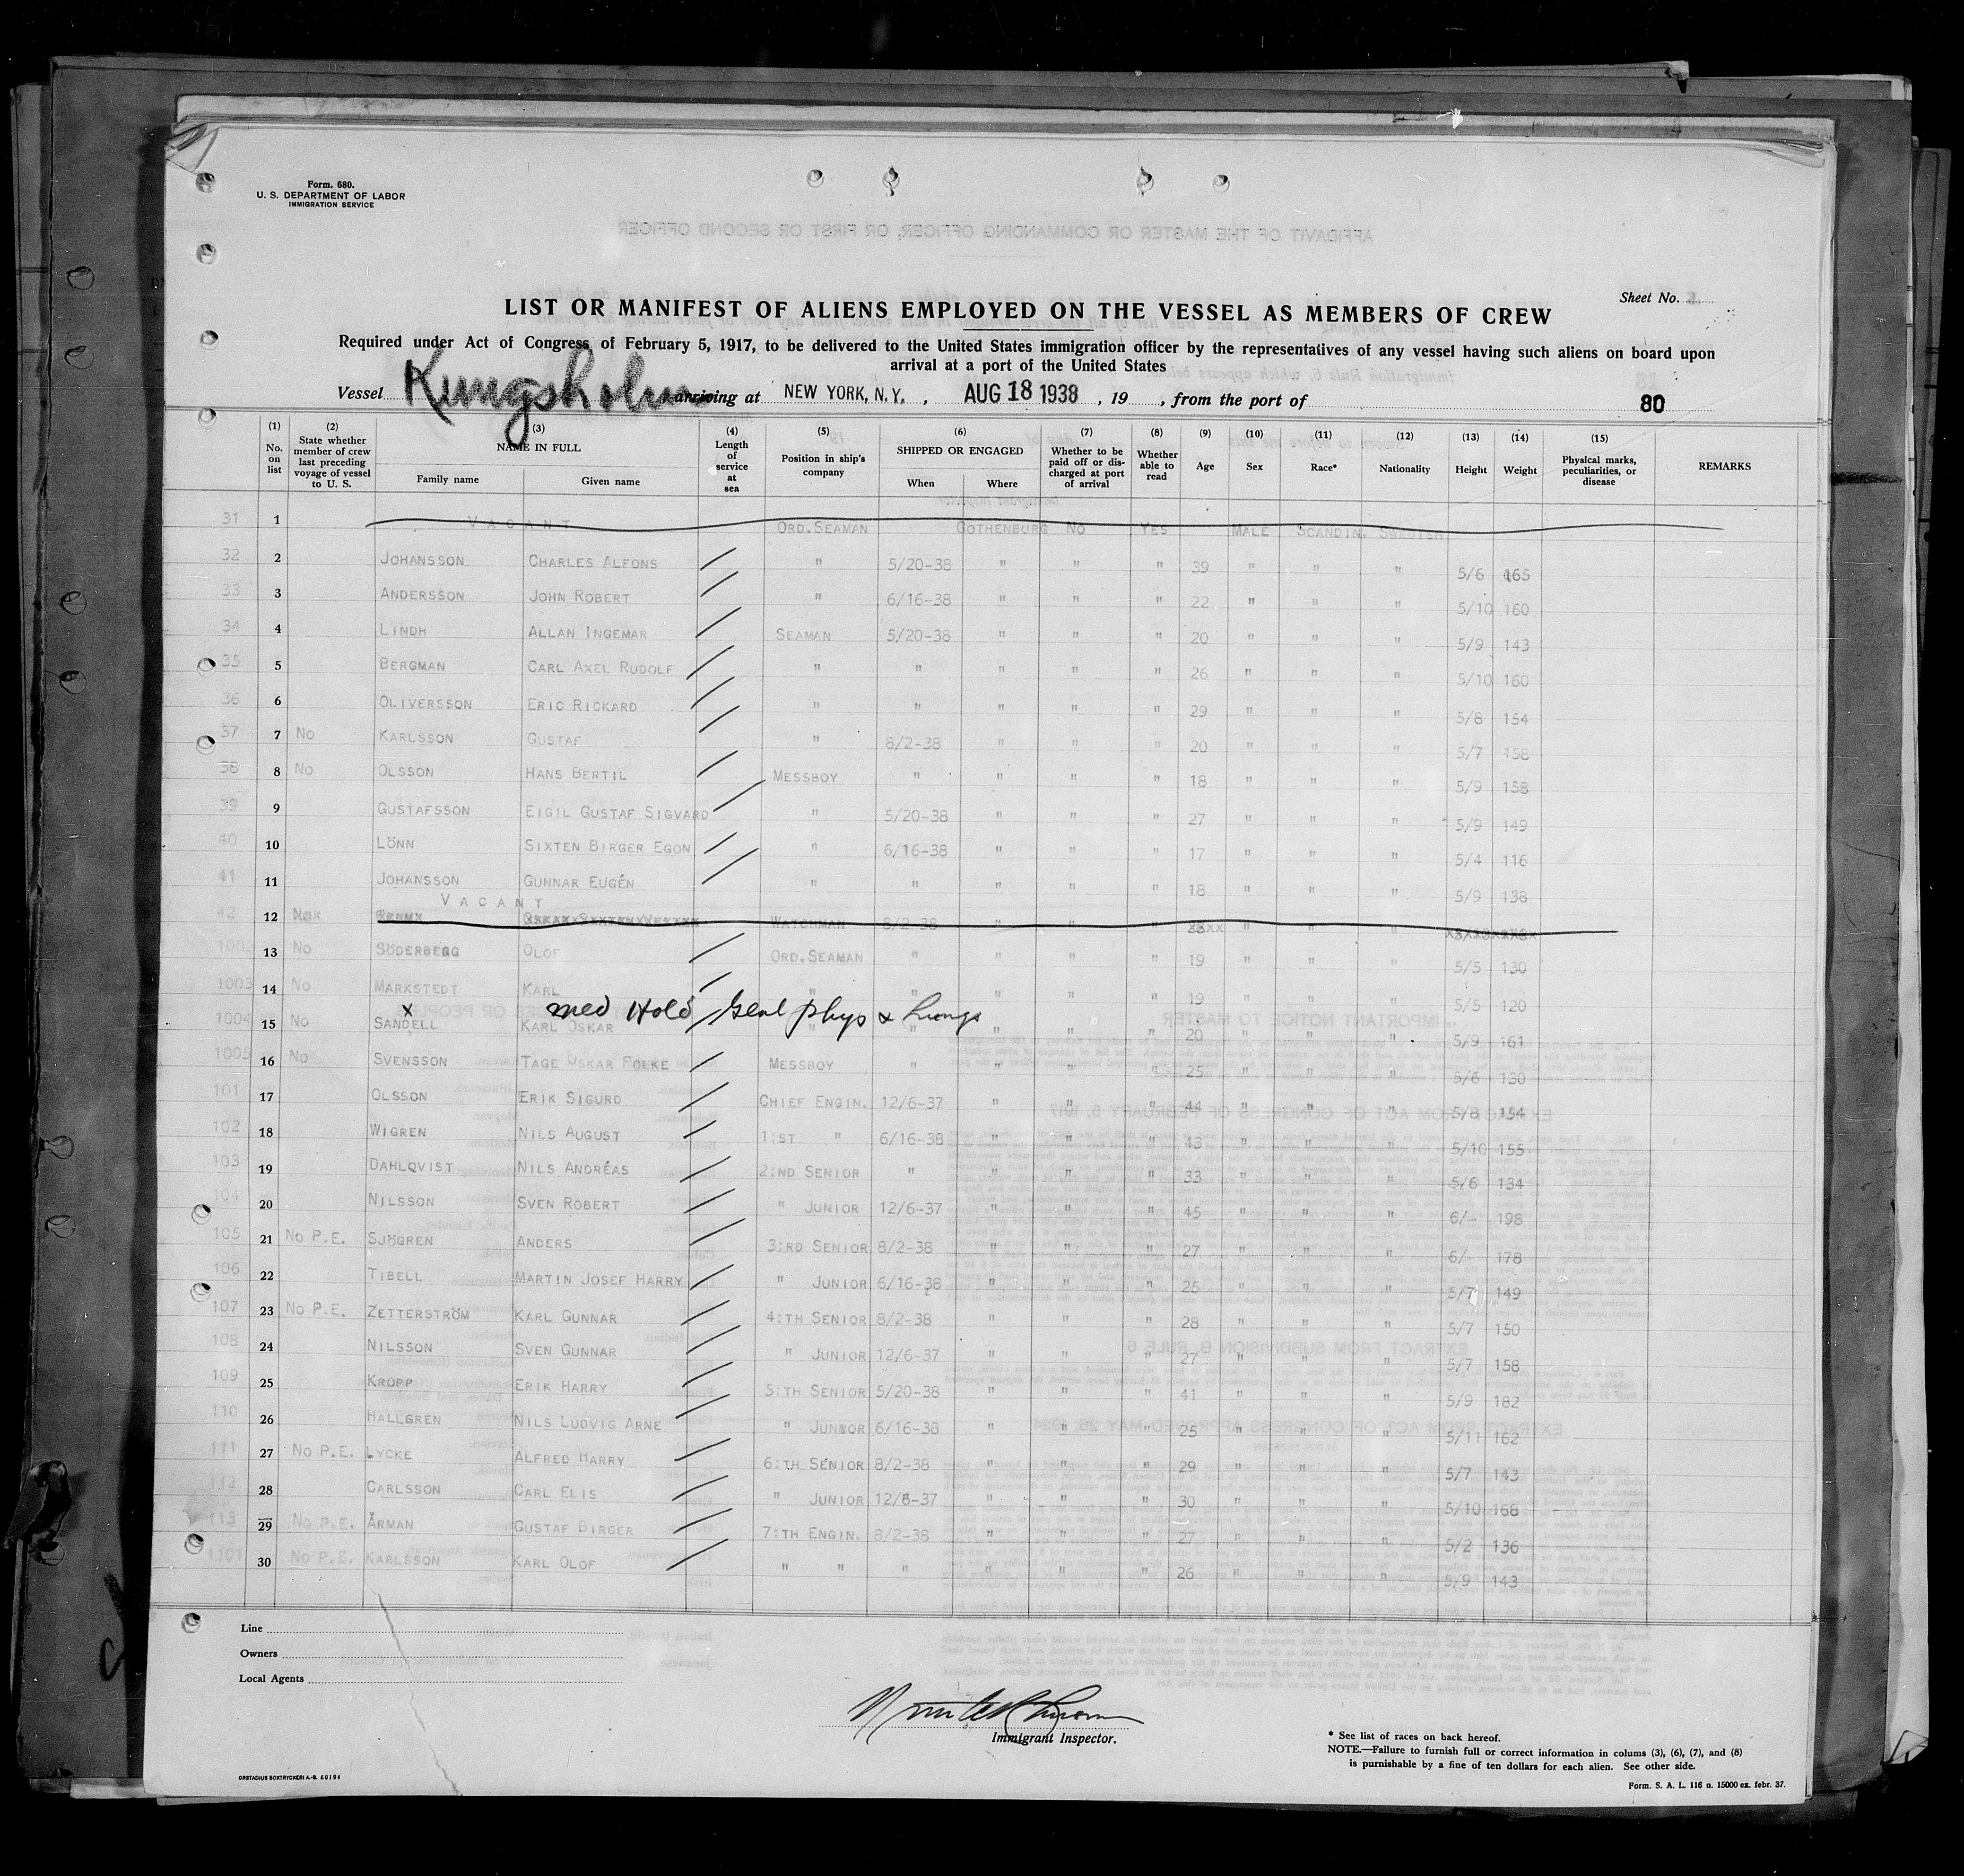 Form. 680.
U. S. DEPARTMENT OF LABOR
IMMIGRATION SERVICE
Sheet No. 2
LIST OR MANIFEST OF ALIENS EMPLOYED ON THE VESSEL AS MEMBERS OF CREW
Required under Act of Congress of February 5, 1917, to be delivered to the United States immigration officer by the representatives of any vessel having such aliens on board upon
arrival at a port of the United States
Vessel Kungsholm arriving at NEW YORK, N.Y., AUG 18 1938, 19 , from the port of 80
(1) No. on list (2) State whether member of crew last preceding voyage of vessel to U. S. (3) NAME IN FULL Family name Given name (4) Length of service at sea (5) Position in ship's company (6) SHIPPED OR ENGAGED When Where (7) Whether to be paid off or discharged at port of arrival (8) Whether able to read (9) Age (10) Sex (11) Race* (12) Nationality (13) Height (14) Weight (15) Physical marks, peculiarities, or disease REMARKS
31 1 VACANT ORD.SEAMAN GOTHENBURG NO YES MALE SCANDIN. SWEDISH
32 2 JOHANSSON CHARLES ALFONS / " 5/20-38 " " " 39 " " " 5/6 165
33 3 ANDERSSON JOHN ROBERT / " 6/16-38 " " " 22 " " " 5/10 160
34 4 LINDH ALLAN INGEMAR / SEAMAN 5/20-38 " " " 20 " " " 5/9 143
35 5 BERGMAN CARL AXEL RUDOLF / " " " " " 26 " " " 5/10 160
36 6 OLIVERSSON ERIC RICKARD / " " " " " 29 " " " 5/8 154
37 7 NO KARLSSON GUSTAF / " 8/2-38 " " " 20 " " " 5/7 158
38 8 NO OLSSON HANS BERTIL / MESSBOY " " " " 18 " " " 5/9 158
39 9 GUSTAFSSON EIGIL GUSTAF SIGVARD / " 5/20-38 " " " 27 " " " 5/9 149
40 10 LÖNN SIXTEN BIRGER EGON / " 6/16-38 " " " 17 " " " 5/4 116
41 11 JOHANSSON GUNNAR EUGÉN / " " " " " 18 " " " 5/9 138
VACANT
42 12 WATCHMAN 8/2-38 " " " " " "
1002 13 NO SÖDERBERG OLOF / ORD.SEAMAN " " " " 19 " " " 5/5 130
1003 14 NO MARKSTEDT KARL / " " " " " 19 " " " 5/5 120
x med Hold Genl phys & Lungs
1004 15 NO SANDELL KARL OSKAR / " " " " " 20 " " " 5/9 161
1005 16 NO SVENSSON TAGE OSKAR FOLKE / MESSBOY " " " " 25 " " " 5/6 130
101 17 OLSSON ERIK SIGURD / CHIEF ENGIN. 12/6-37 " " " 44 " " " 5/8 154
102 18 WIGREN NILS AUGUST / 1:ST " 6/16-38 " " " 43 " " " 5/10 155
103 19 DAHLQVIST NILS ANDRÉAS / 2:ND SENIOR " " " " 33 " " " 5/6 134
104 20 NILSSON SVEN ROBERT / " JUNIOR 12/6-37 " " " 45 " " " 6/- 198
105 21 NO P.E. SJÖGREN ANDERS / 3:RD SENIOR 8/2-38 " " " 27 " " " 6/- 178
106 22 TIBELL MARTIN JOSEF HARRY / " JUNIOR 6/16-38 " " " 25 " " " 5/7 149
107 23 NO P.E. ZETTERSTRÖM KARL GUNNAR / 4:TH SENIOR 8/2-38 " " " 28 " " " 5/7 150
108 24 NILSSON SVEN GUNNAR / " JUNIOR 12/6-37 " " " 27 " " " 5/7 158
109 25 KROPP ERIK HARRY / 5:TH SENIOR 5/20-38 " " " 41 " " " 5/9 182
110 26 HALLGREN NILS LUDVIG ARNE / " JUNIOR 6/16-38 " " " 25 " " " 5/11 162
111 27 NO P.E. LYCKE ALFRED HARRY / 6:TH SENIOR 8/2-38 " " " 29 " " " 5/7 143
112 28 CARLSSON CARL ELIS / " JUNIOR 12/6-37 " " " 30 " " " 5/10 168
113 29 NO P.E. ÅRMAN GUSTAF BIRGER / 7:TH ENGIN. 8/2-38 " " " 27 " " " 5/2 136
1101 30 NO P.E. KARLSSON KARL OLOF / " " " " " " 26 " " " 5/9 143
Line
Owners
Local Agents
Immigrant Inspector.
* See list of races on back hereof.
NOTE.—Failure to furnish full or correct information in colums (3), (6), (7), and (8)
is punishable by a fine of ten dollars for each alien. See other side.
ORSTADIUS BOKTRYCKERI A.-B. 60194
Form. S. A. L. 116 n. 15000 ex. febr. 37.